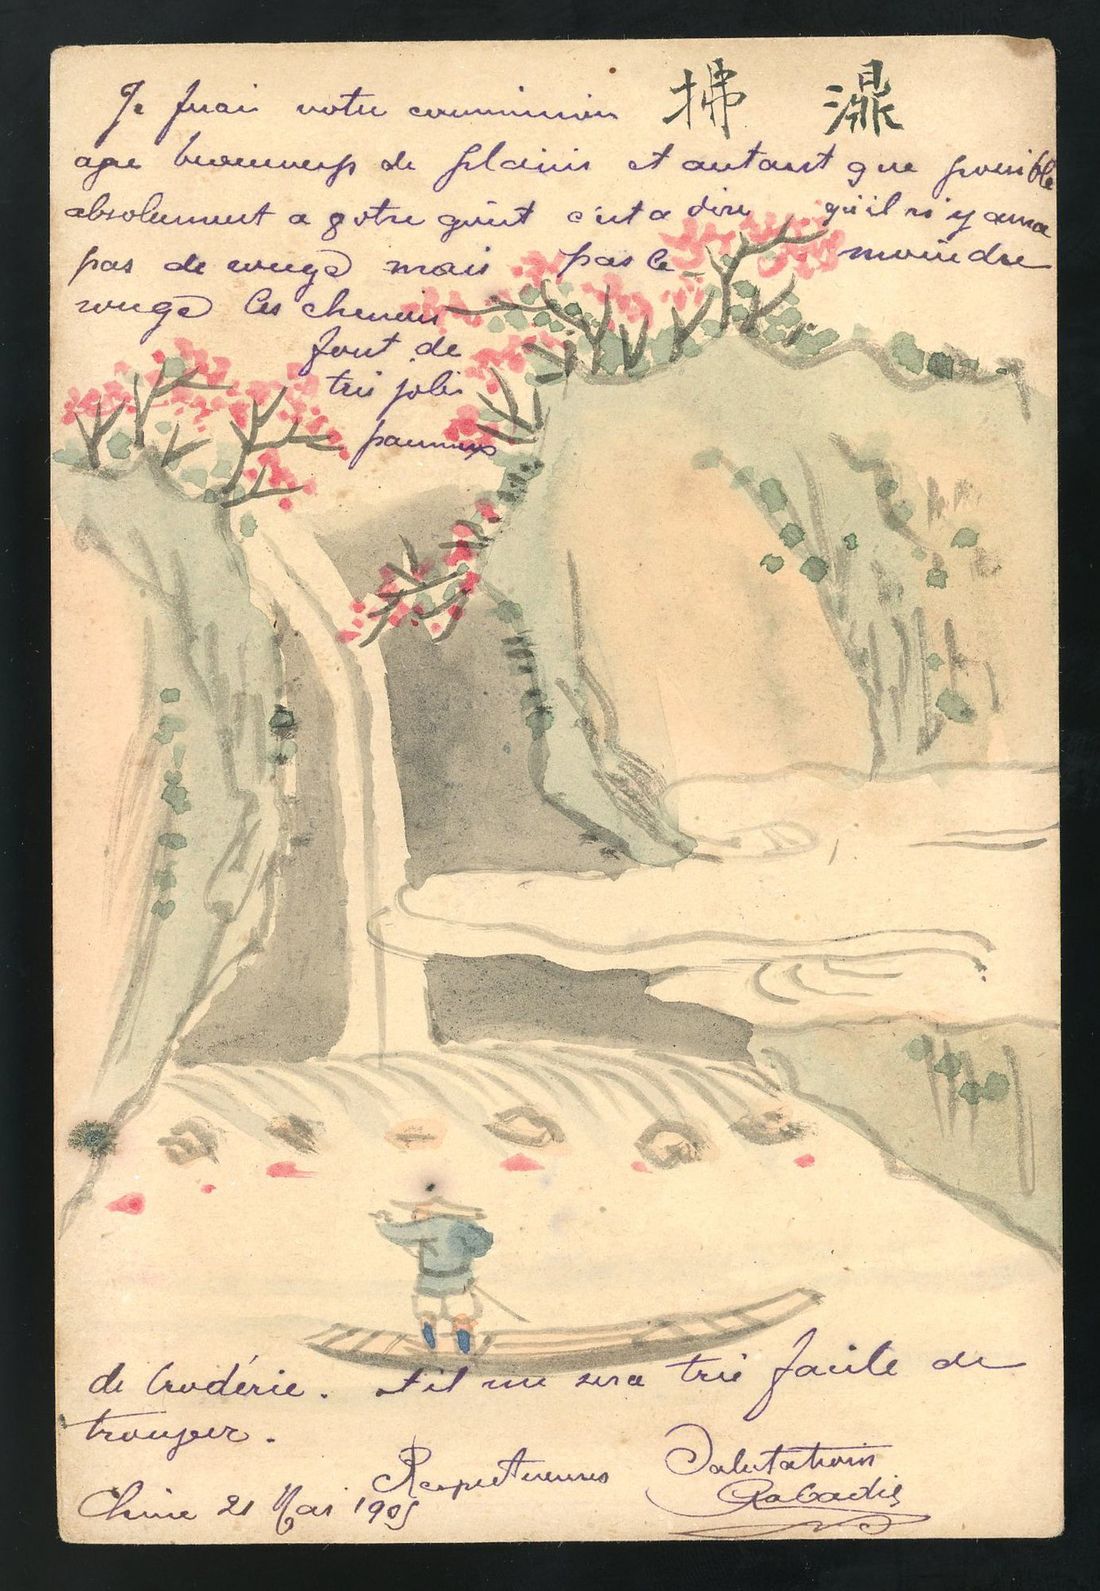 Je ferai votre commission 拂 瀑
avec beaucoup de plaisir et autant que possible
absolument a votre goût c'est a dire qu'il n'y aura
pas de rouge mais pas le moindre
rouge les chinois
font de
très jolis
panneaux
de brodérie. et il me sera très facile de
trouver.
Respectueuses Salutations
Chine 21 Mai 1905